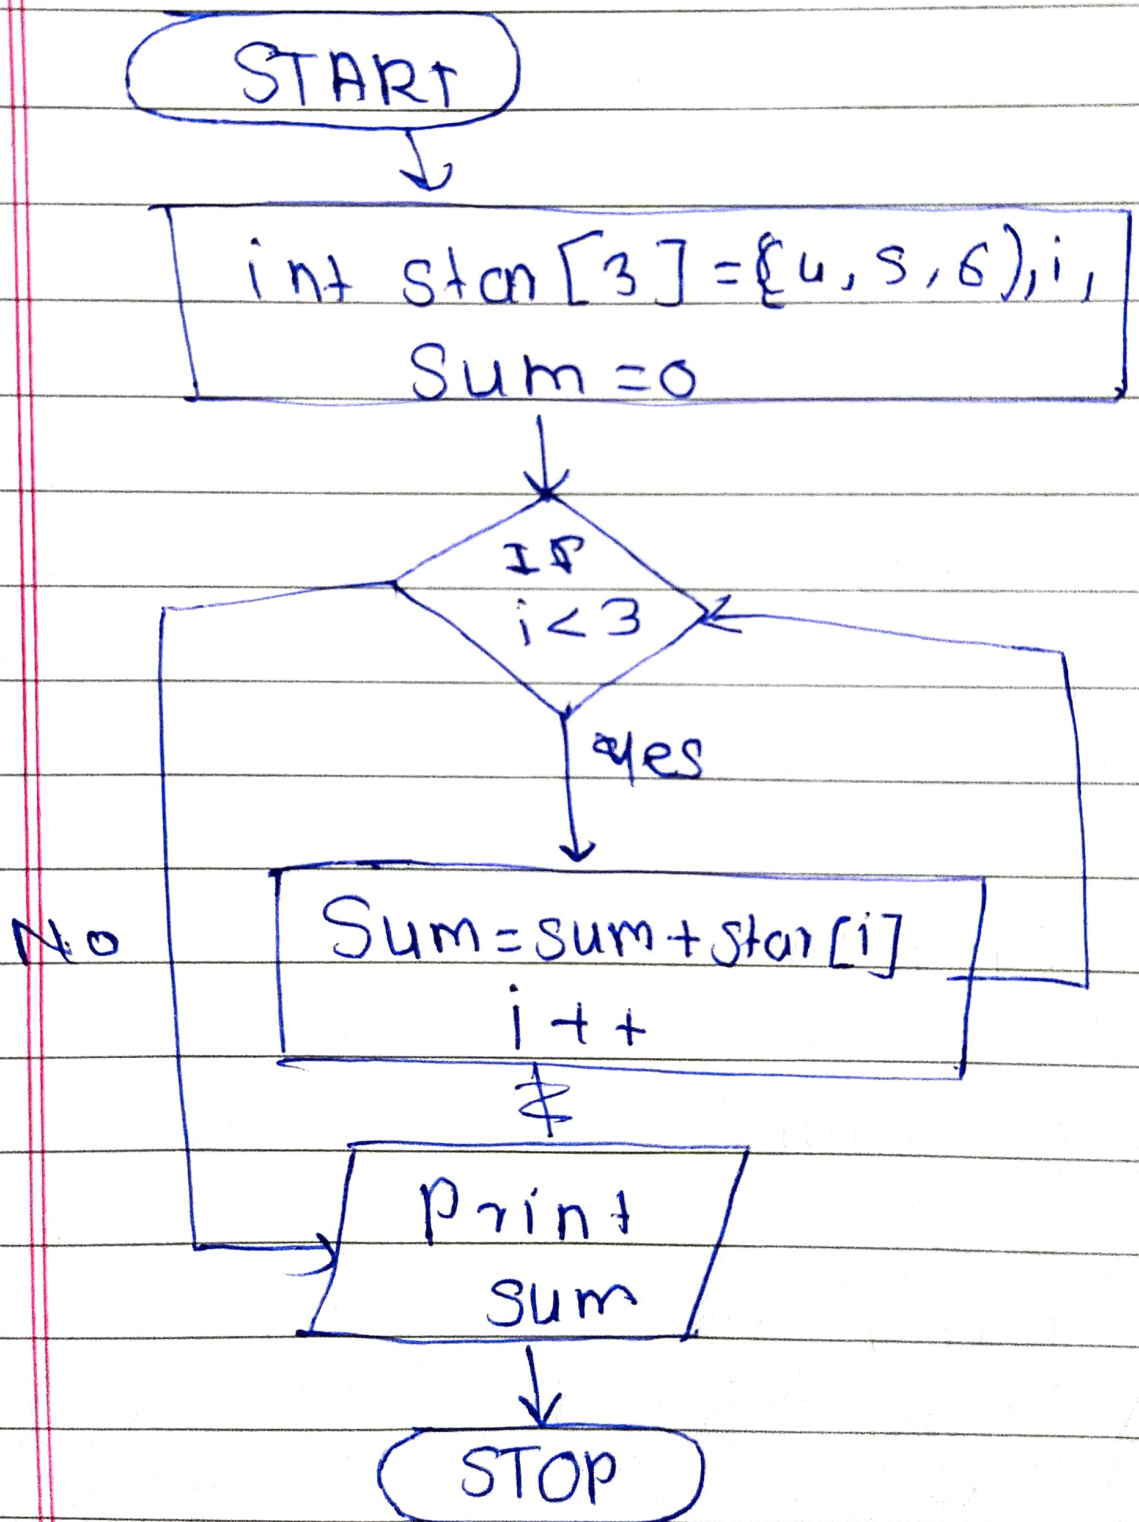 START
int star[3]={4,5,6),i,
Sum=0
If
i<3
yes
No
Sum=sum+star[i]
i++
Print
sum
STOP